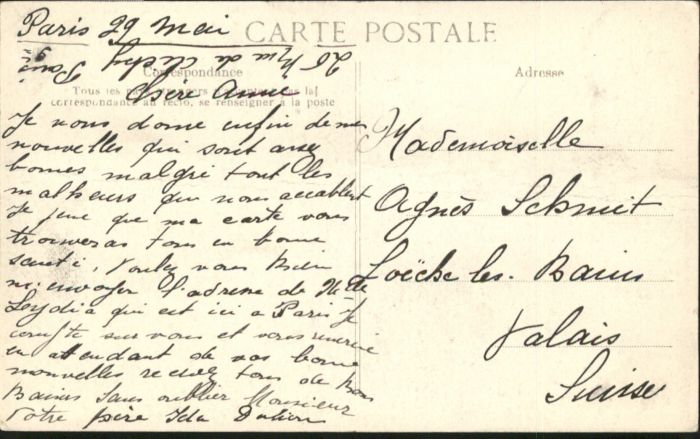 Paris 29 Mai
CARTE POSTALE
20 Rue de Clichy Paris 9
Correspondance
Adresse
Tous les pays
correspondance au recto, se renseigner à la poste
Chère Amie
Je vous donne enfin de mes
nouvelles qui sont assez
bonnes malgré tout les
malheurs qui nous accablent
Je pense que ma carte vous
trouveras tous en bonne
santé, Voulez vous bien
m'envoyer l'adresse de Mlle
Leydia qui est ici a Paris Je
compte sur vous et vous remercie
en attendant de vos bonne
nouvelles recevez tous de bons
Baisers sans oublier Monsieur
votre père Ida
Mademoiselle
Agnès Schmit
Loëche les. Bains
Valais
Suisse